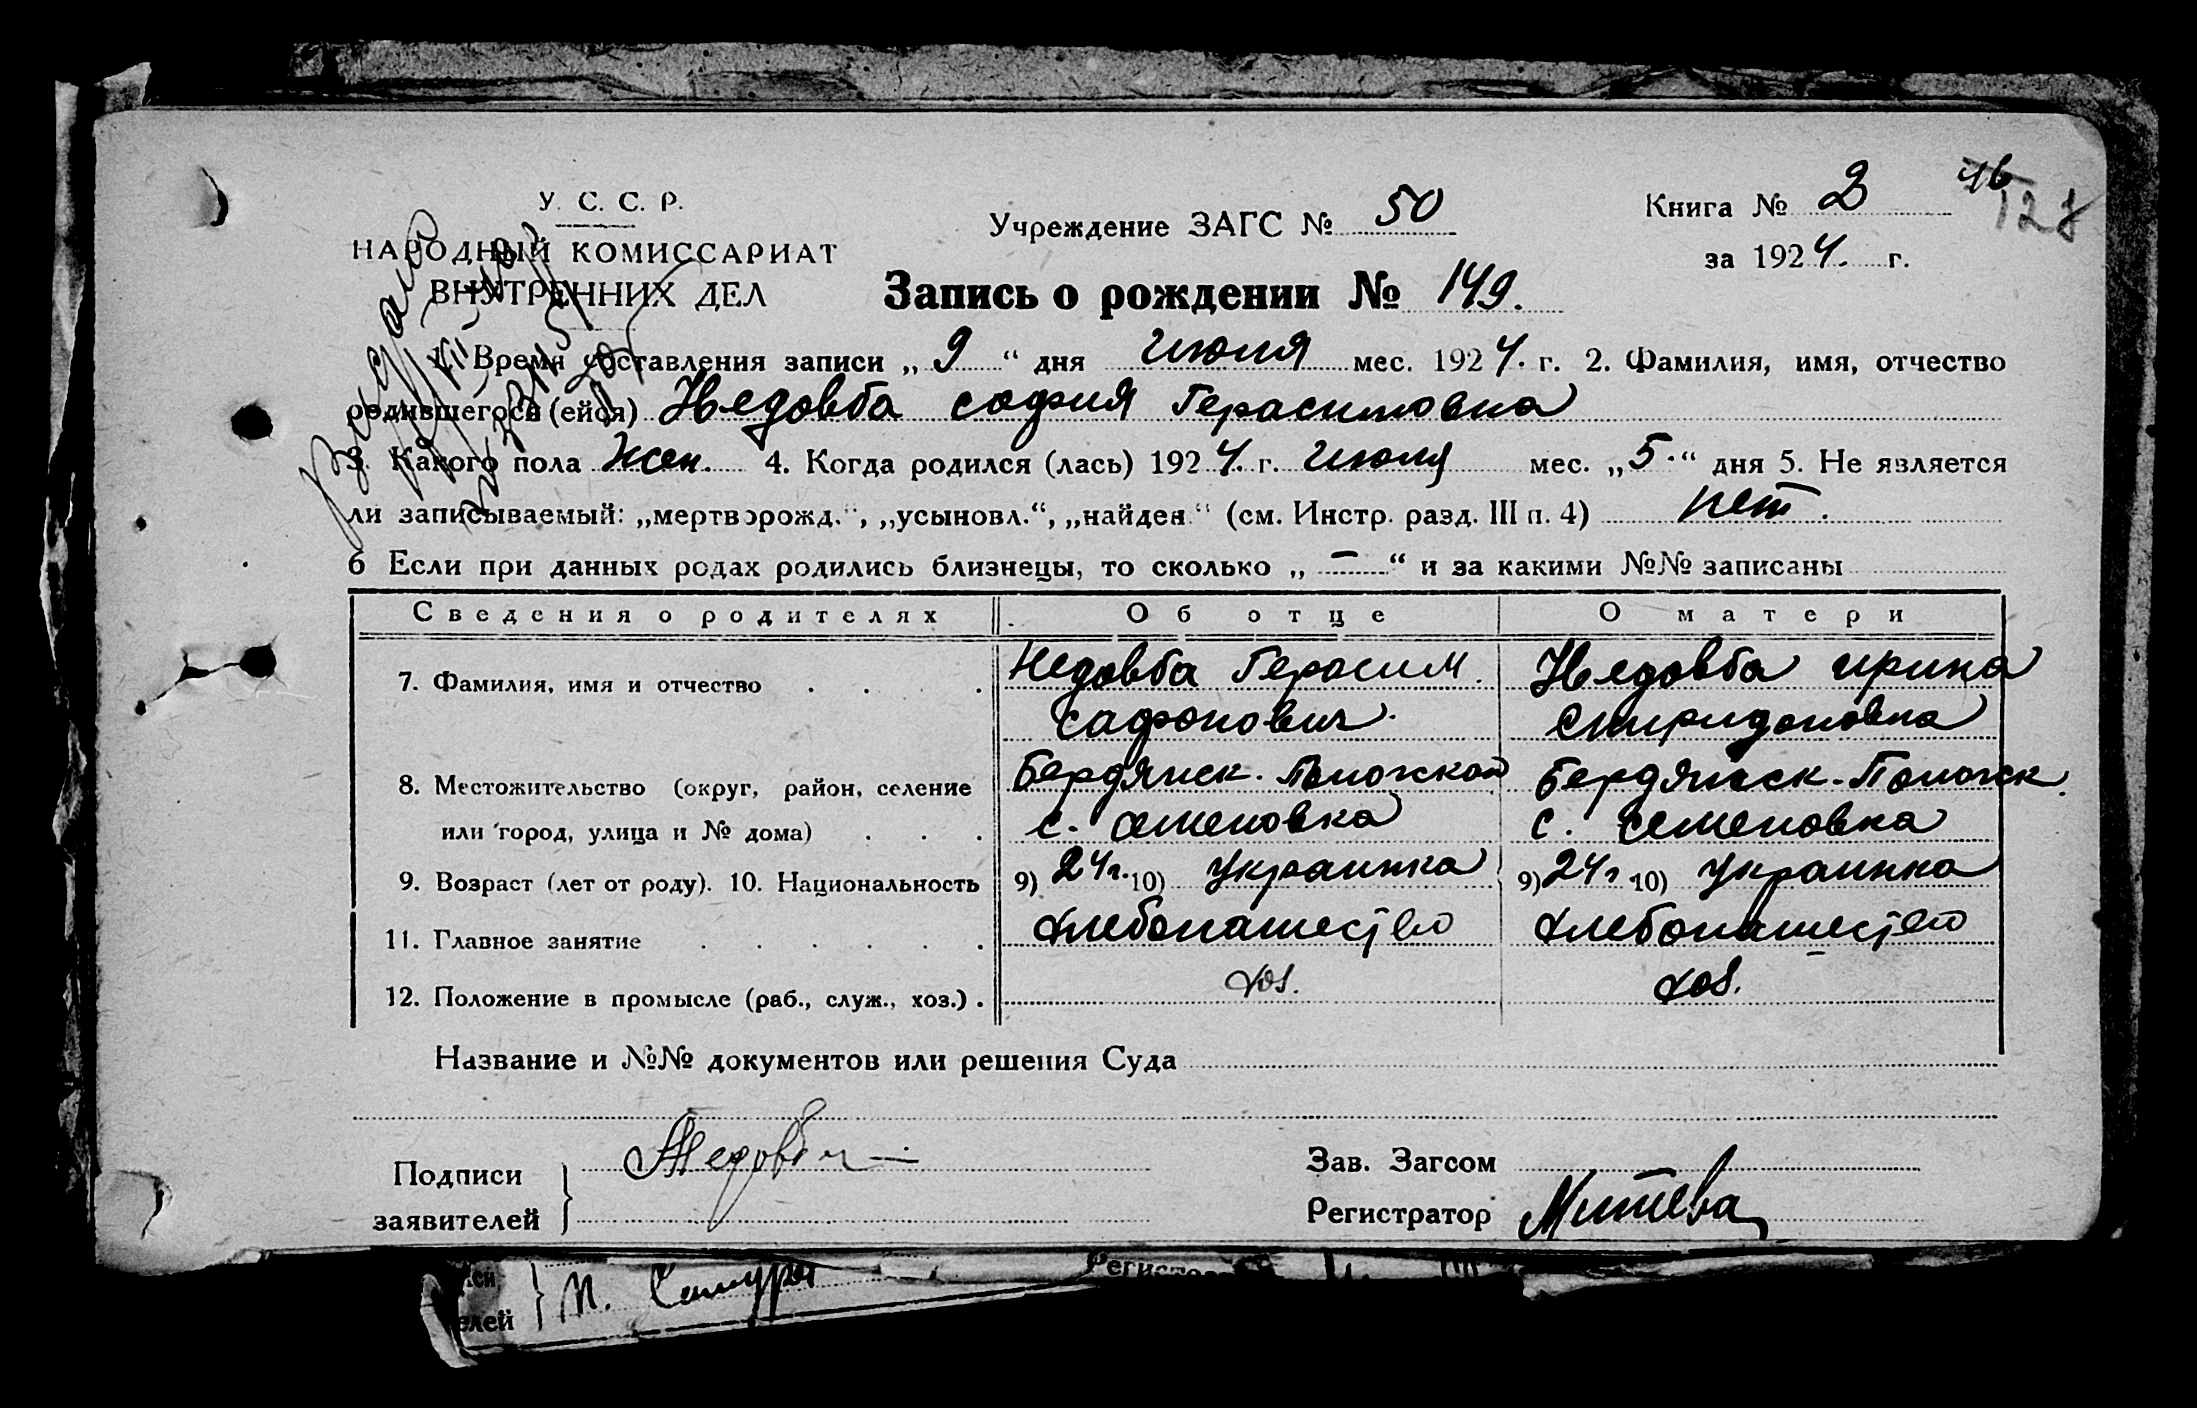 У. С. С. Р.
НАРОДНЫЙ КОМИССАРИАТ
ВНУТРЕННИХ ДЕЛ
Учреждение ЗАГС № 50
Книга № 2
за 1924. г.
46
128
Запись о рождении № 149.
1. Время составления записи „ 9 “ дня июля мес. 1924. г. 2. Фамилия, имя, отчество
родившегося (ейся) Недовба софия Герасимовна
3. Какого пола жен. 4. Когда родился (лась) 1924. г. июля мес. „ 5. “ дня 5. Не является
ли записываемый: „мертворожд.“, „усыновл.“, „найден.“ (см. Инстр. разд. III п. 4) нет.
6 Если при данных родах родились близнецы, то сколько „ — “ и за какими №№ записаны
Сведения о родителях Об отце О матери
7. Фамилия, имя и отчество Недовба Герасим Недовба ирина
сафонович. спиридоновна
8. Местожительство (округ, район, селение Бердянск. Пологской бердянск-Пологск.
или город, улица и № дома) с. семеновка с. семеновка
9. Возраст (лет от роду). 10. Национальность 9) 24г. 10) Украинка 9) 24г 10) Украинка
11. Главное занятие хлебопашество хлебопашество
12. Положение в промысле (раб., служ., хоз.) хоз. хоз.
Название и №№ документов или решения Суда
Подписи
заявителей
Зав. Загсом
Регистратор Митева
елей